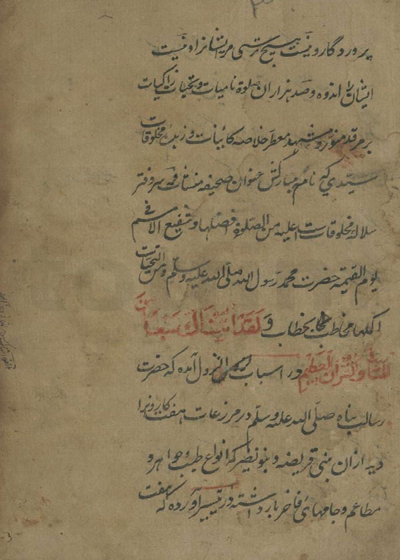 پروردگار و نیست هیچ ترسی مر ایشانرا و نیست
ایشان را اندوه و صد هزاران صلوة نامیات و تحیات زاکیات
بر مرقد منور و مشهد معطر خلاصه کاینات و زبده مخلوقات
سیدی که نام مبارکش عنوان صحیفه سر دفتر
سلاله مخلوقات است علیه من الصلوة افضلها و شفیع الامم
یوم القیمة حضرت محمد رسول الله صلی الله علیه وسلم و من التحیات
اکملها مخاطب بخطاب و لقد آتیناک سبعا من
المثانی والقرآن العظیم در اسباب النزول آمده که حضرت
رسالت پناه صلی الله علیه وسلم در هفت کاروانرا
دید از آن بنی قریضه و بنو نضیر که انواع طیب و جواهر و
مطاعم و جامهای فاخر بار داشته در آورده که هفت